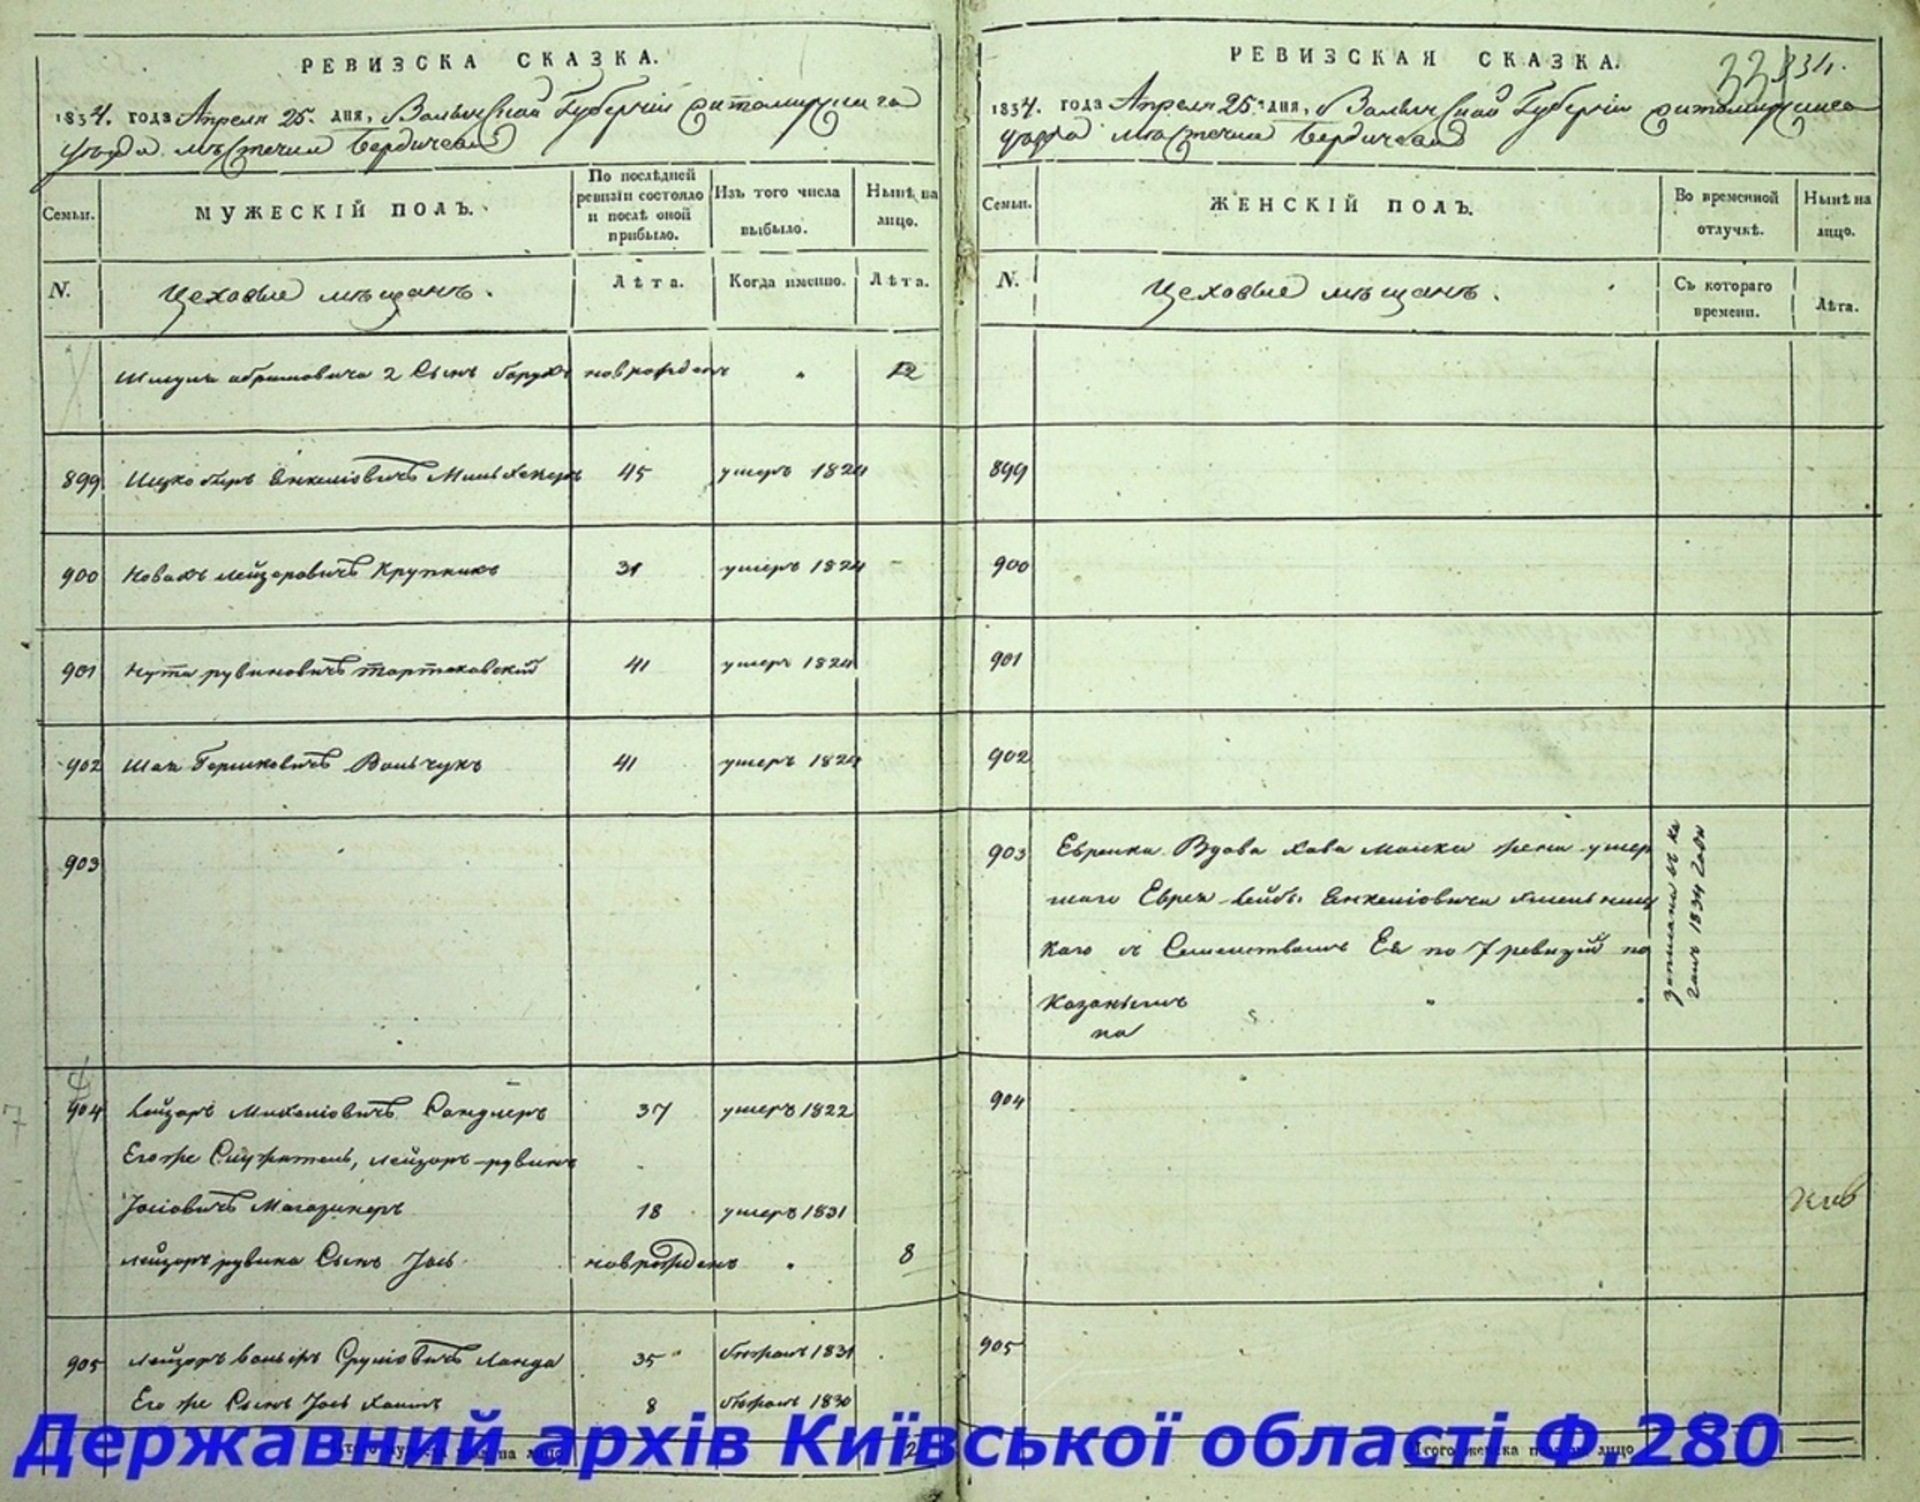 РЕВИЗСКА СКАЗКА.
1834. года Апреля 25. дня, Волынской Губернии Житомирскаго
уезда местечка Бердичева
Семьи.
МУЖЕСКІЙ ПОЛЪ.
По послѣдней
ревизіи состояло
и послѣ оной
прибыло.
Изъ того числа
выбыло.
Нынѣ на
лицо.
N.
Цеховые мещанъ.
Лѣта.
Когда именно.
Лѣта.
Шмуля абрамовича 2 Сынъ барухъ новрожденъ " 12
899 Ицко беръ Янкелiовичъ 45 умеръ 1824
900 Новахъ лейзоровичъ Крупникъ 31 умеръ 1824
901 Нута рувиновичъ тартаковский 41 умеръ 1824
902 Шая Гершковичъ Вольчукъ 41 умеръ 1824
903
904 Лейзоръ Михелiовичъ Сандлеръ 37 умеръ 1822
Егоже Служитель, лейзоръ-рувинъ
Iосiовичъ Магазинеръ 18 умеръ 1831
лейзоръ рувина Сынъ Iось новрожденъ " 8
905 Лейзоръ вольфъ Сруліовичъ Ланда 35 бежалъ 1831
Его же Сынъ Iось Хаимъ 8 бежалъ 1830
2
РЕВИЗСКАЯ СКАЗКА.
334.
1834. года Апреля 25. дня, Волынской Губернии Житомирскаго
уезда местечка Бердичева
Семьи.
ЖЕНСКІЙ ПОЛЪ.
Во временной
отлучкѣ.
Нынѣ на
лицо.
N.
Цеховые мещанъ.
Съ котораго
времени.
Лѣта.
899
900
901
902
903 Еврейка Вдова Хава Малка жена умер
шаго Еврея Лейбы Янкелiовича Хмельниц
каго с Семействомъ Ея по 7 ревизий по
казанымъ
по
904
905
Итого женска пола на лицо
Державний архів Київської області Ф.280